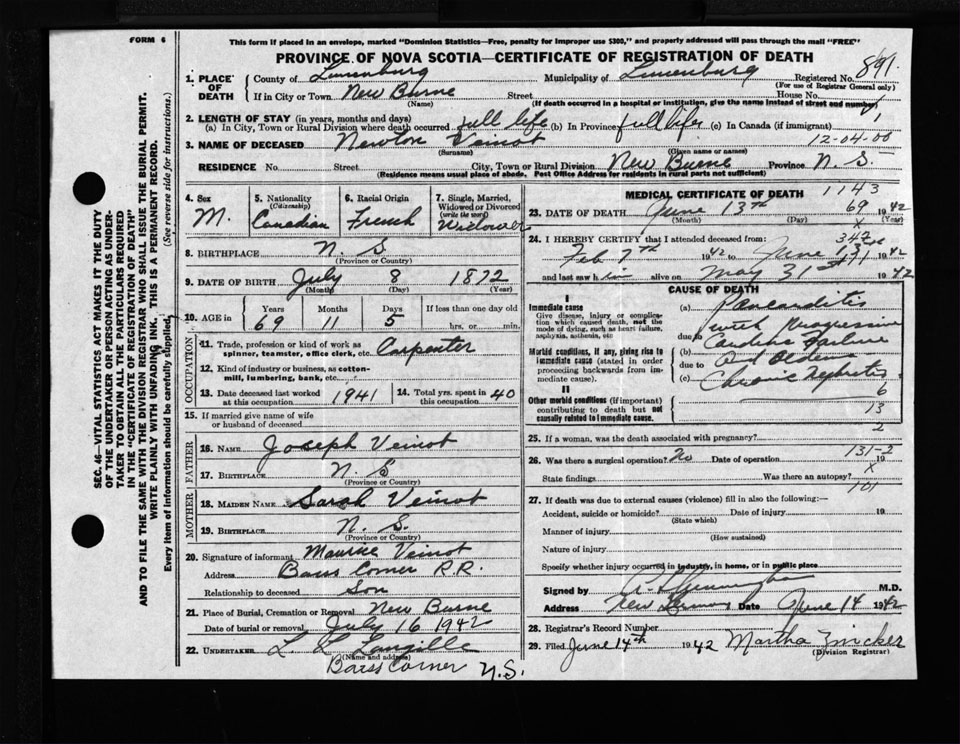 FORM 6
This form if placed in an envelope, marked "Dominion Statistics—Free, penalty for improper use $300," and properly addressed will pass through the mail "FREE"
PROVINCE OF NOVA SCOTIA—CERTIFICATE OF REGISTRATION OF DEATH
SEC. 46—VITAL STATISTICS ACT MAKES IT THE DUTY
OF THE UNDERTAKER OR PERSON ACTING AS UNDER-
TAKER TO OBTAIN ALL THE PARTICULARS REQUIRED
IN THE "CERTIFICATE OF REGISTRATION OF DEATH"
AND TO FILE THE SAME WITH THE DIVISION REGISTRAR WHO SHALL ISSUE THE BURIAL PERMIT.
WRITE PLAINLY WITH UNFADING INK. THIS IS A PERMANENT RECORD.
Every item of information should be carefully supplied. (See reverse side for instructions.)
1. PLACE OF DEATH
County of Lunenburg Municipality of Lunenburg Registered No. 891
(For use of Registrar General only)
If in City or Town New Burne Street House No.
(Name) (If death occurred in a hospital or institution, give the name instead of street and number)
2. LENGTH OF STAY (in years, months and days)
(a) In City, Town or Rural Division where death occurred full life (b) In Province full life (c) In Canada (if immigrant)
12-04-00
3. NAME OF DECEASED Newton Veinot
(Surname) (Given name or names)
RESIDENCE No. Street City, Town or Rural Division New Burne Province N.S.
(Residence means usual place of abode. Post Office Address for residents in rural parts not sufficient)
4. Sex M.
5. Nationality (Citizenship) Canadian
6. Racial Origin French
7. Single, Married, Widowed or Divorced (write the word) Widower
8. BIRTHPLACE N.S
(Province or Country)
9. DATE OF BIRTH July 8 1872
(Month) (Day) (Year)
10. AGE in Years Months Days If less than one day old
69 11 5 hrs. or min.
OCCUPATION
11. Trade, profession or kind of work as spinner, teamster, office clerk, etc. Carpenter
12. Kind of industry or business, as cotton-mill, lumbering, bank, etc.
13. Date deceased last worked at this occupation 1941
14. Total yrs. spent in this occupation 40
15. If married give name of wife or husband of deceased
FATHER
16. NAME Joseph Veinot
17. BIRTHPLACE N.S
(Province or Country)
MOTHER
18. MAIDEN NAME Sarah Veinot
19. BIRTHPLACE N.S.
(Province or Country)
20. Signature of informant Maurice Veinot
Address Barss Corner R.R.
Relationship to deceased Son
21. Place of Burial, Cremation or Removal New Burne
Date of burial or removal July 16 1942
22. UNDERTAKER L L Langille
(Name and address)
Barss Corner N.S.
MEDICAL CERTIFICATE OF DEATH 1143
23. DATE OF DEATH June 13th 69 1942
(Month) (Day) (Year)
24. I HEREBY CERTIFY that I attended deceased from:
Feb 7th 1942 to June 13 1942
and last saw him alive on May 31st 1942
CAUSE OF DEATH
I
Immediate cause
Give disease, injury or complication which caused death, not the mode of dying, such as heart failure, asphyxia, asthenia, etc
(a) Pancarditis
with Progressive
due to
(b) Cardiac Failure
due to and Oedema
(c) Chronic Nephritis
Morbid conditions, if any, giving rise to immediate cause (stated in order proceeding backwards from immediate cause).
II
Other morbid conditions (if important) contributing to death but not causally related to immediate cause.
6
13
2
25. If a woman, was the death associated with pregnancy?
131-2
26. Was there a surgical operation? No Date of operation 19
State findings Was there an autopsy?
101
27. If death was due to external causes (violence) fill in also the following:—
Accident, suicide or homicide? Date of injury 19
(State which)
Manner of injury
(How sustained)
Nature of injury
Specify whether injury occurred in industry, in home, or in public place
Signed by M.D.
Address New Date June 14 1942
28. Registrar's Record Number
29. Filed June 14th 1942 Martha Zwicker
(Division Registrar)